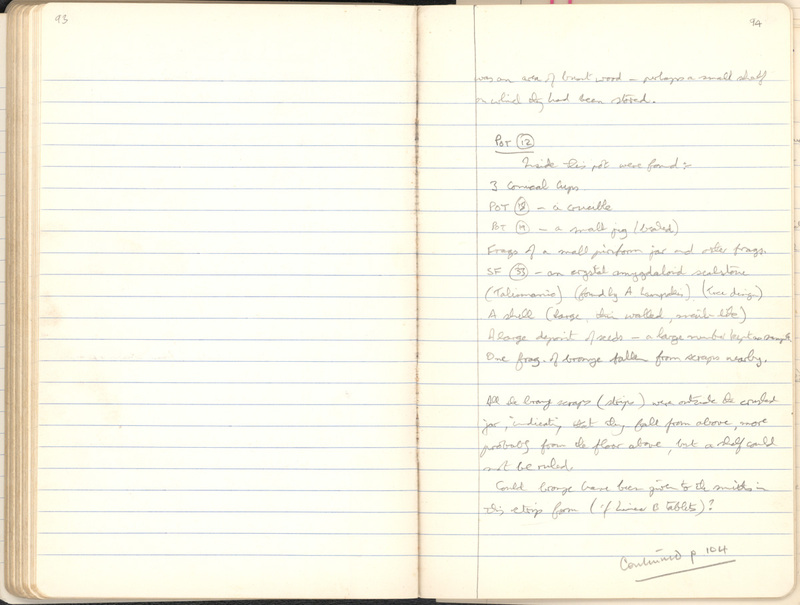 93
94
was an area of burnt wood – perhaps a small shelf
on which they had been stored.
POT 12
Inside this pot were found :-
3 Conical Cups
POT 18 – a crucible
POT 19 – a small jug
Frags of a small piriform jar and other frags.
SF 33 – an crystal amygdaloid sealstone
(Talismanic) (found by A
A shell (large, thin walled, snail-like)
A large deposit of seeds – a large number kept as sample
One frag. of bronze fallen from scraps nearby.
All the bronze scraps (strips) were outside the crushed
jar, indicating that they fell from above, more
probably from the floor above, but a shelf could
not be ruled.
Could bronze have been given to the smiths in
this strips form (cf Linear B tablets)?
Continued p 104